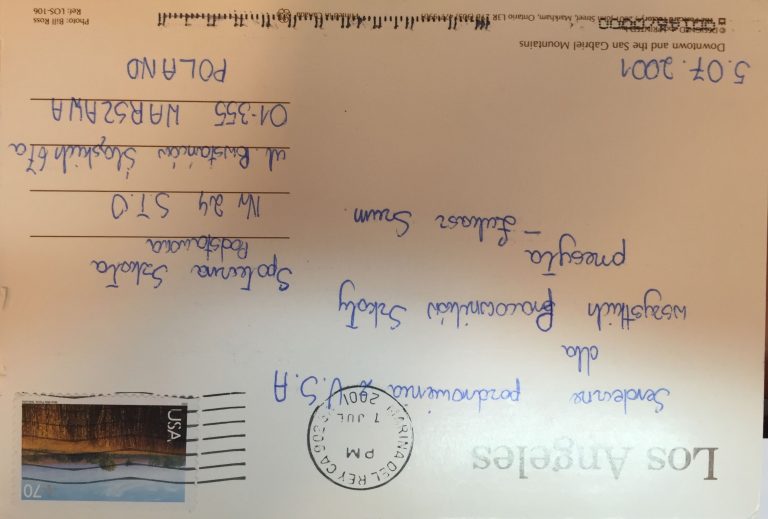 Los Angeles
MARINA DEL REY CA
PM
7 JUL
2001
USA
70
Serdeczne pozdrowienia z U.S.A
dla
wszystkich Pracowników Szkoły
przesyła
– Łukasz Szum.
Społeczna Szkoła
Podstawowa
Nr 24 S.T.O
ul. Powstańców Śląskich 67a
01-355 WARSZAWA
POLAND
5.07.2001
Downtown and the San Gabriel Mountains
Photo: Bill Ross
Ref: LOS-106
Street, Markham, Ontario L3R